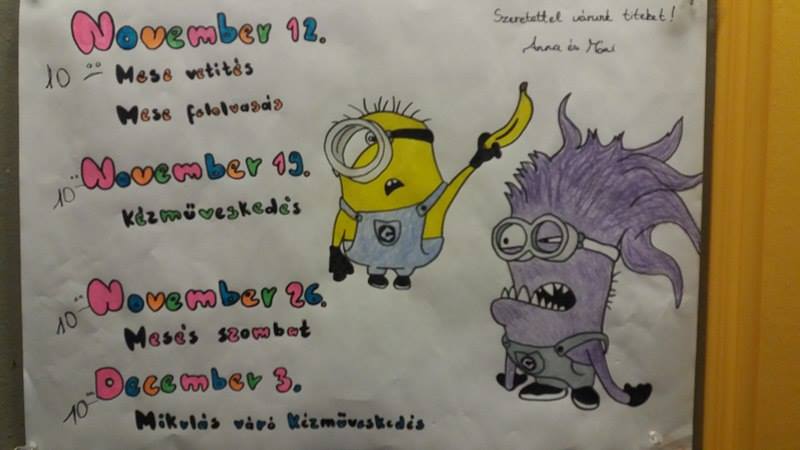 Szeretettel várunk titeket!
Anna és
November 12.
10 Mese vetítés
Mese fololvasás
10 November 19.
Kézműveskedés
10 November 26.
Mesés szombat
10 December 3.
Mikulás váró Kézműveskedés